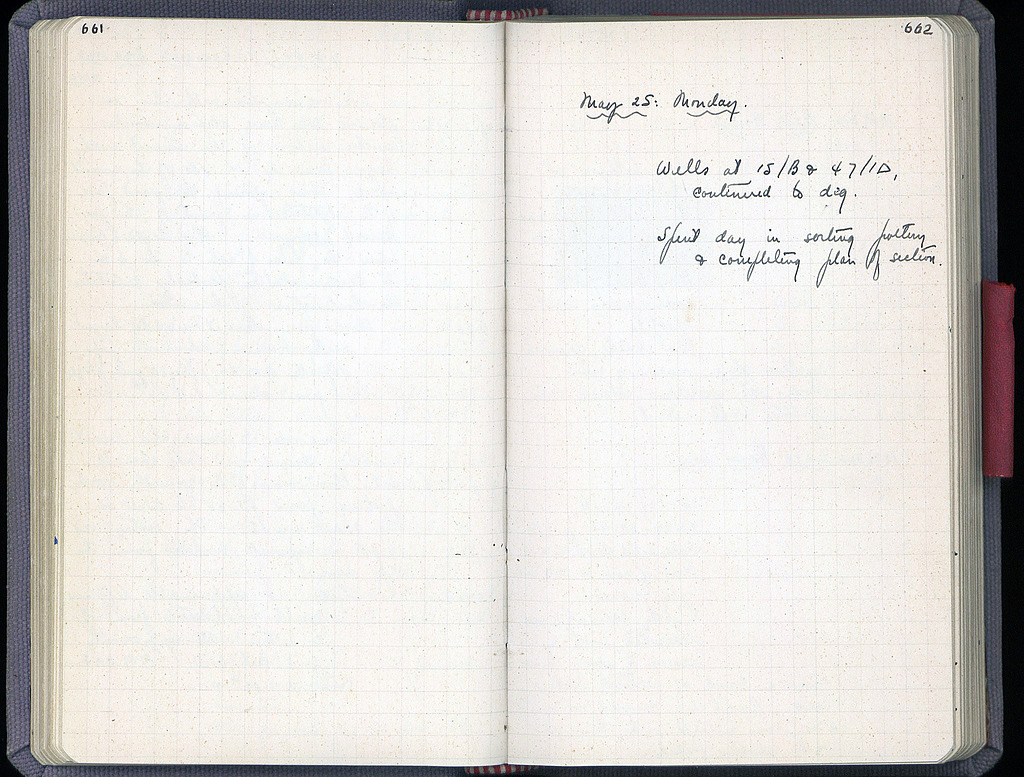 661
662
May 25: Monday.
Wells at 15/B & 47/1D,
continued to dig.
Spent day in sorting pottery
& completing plan of section.